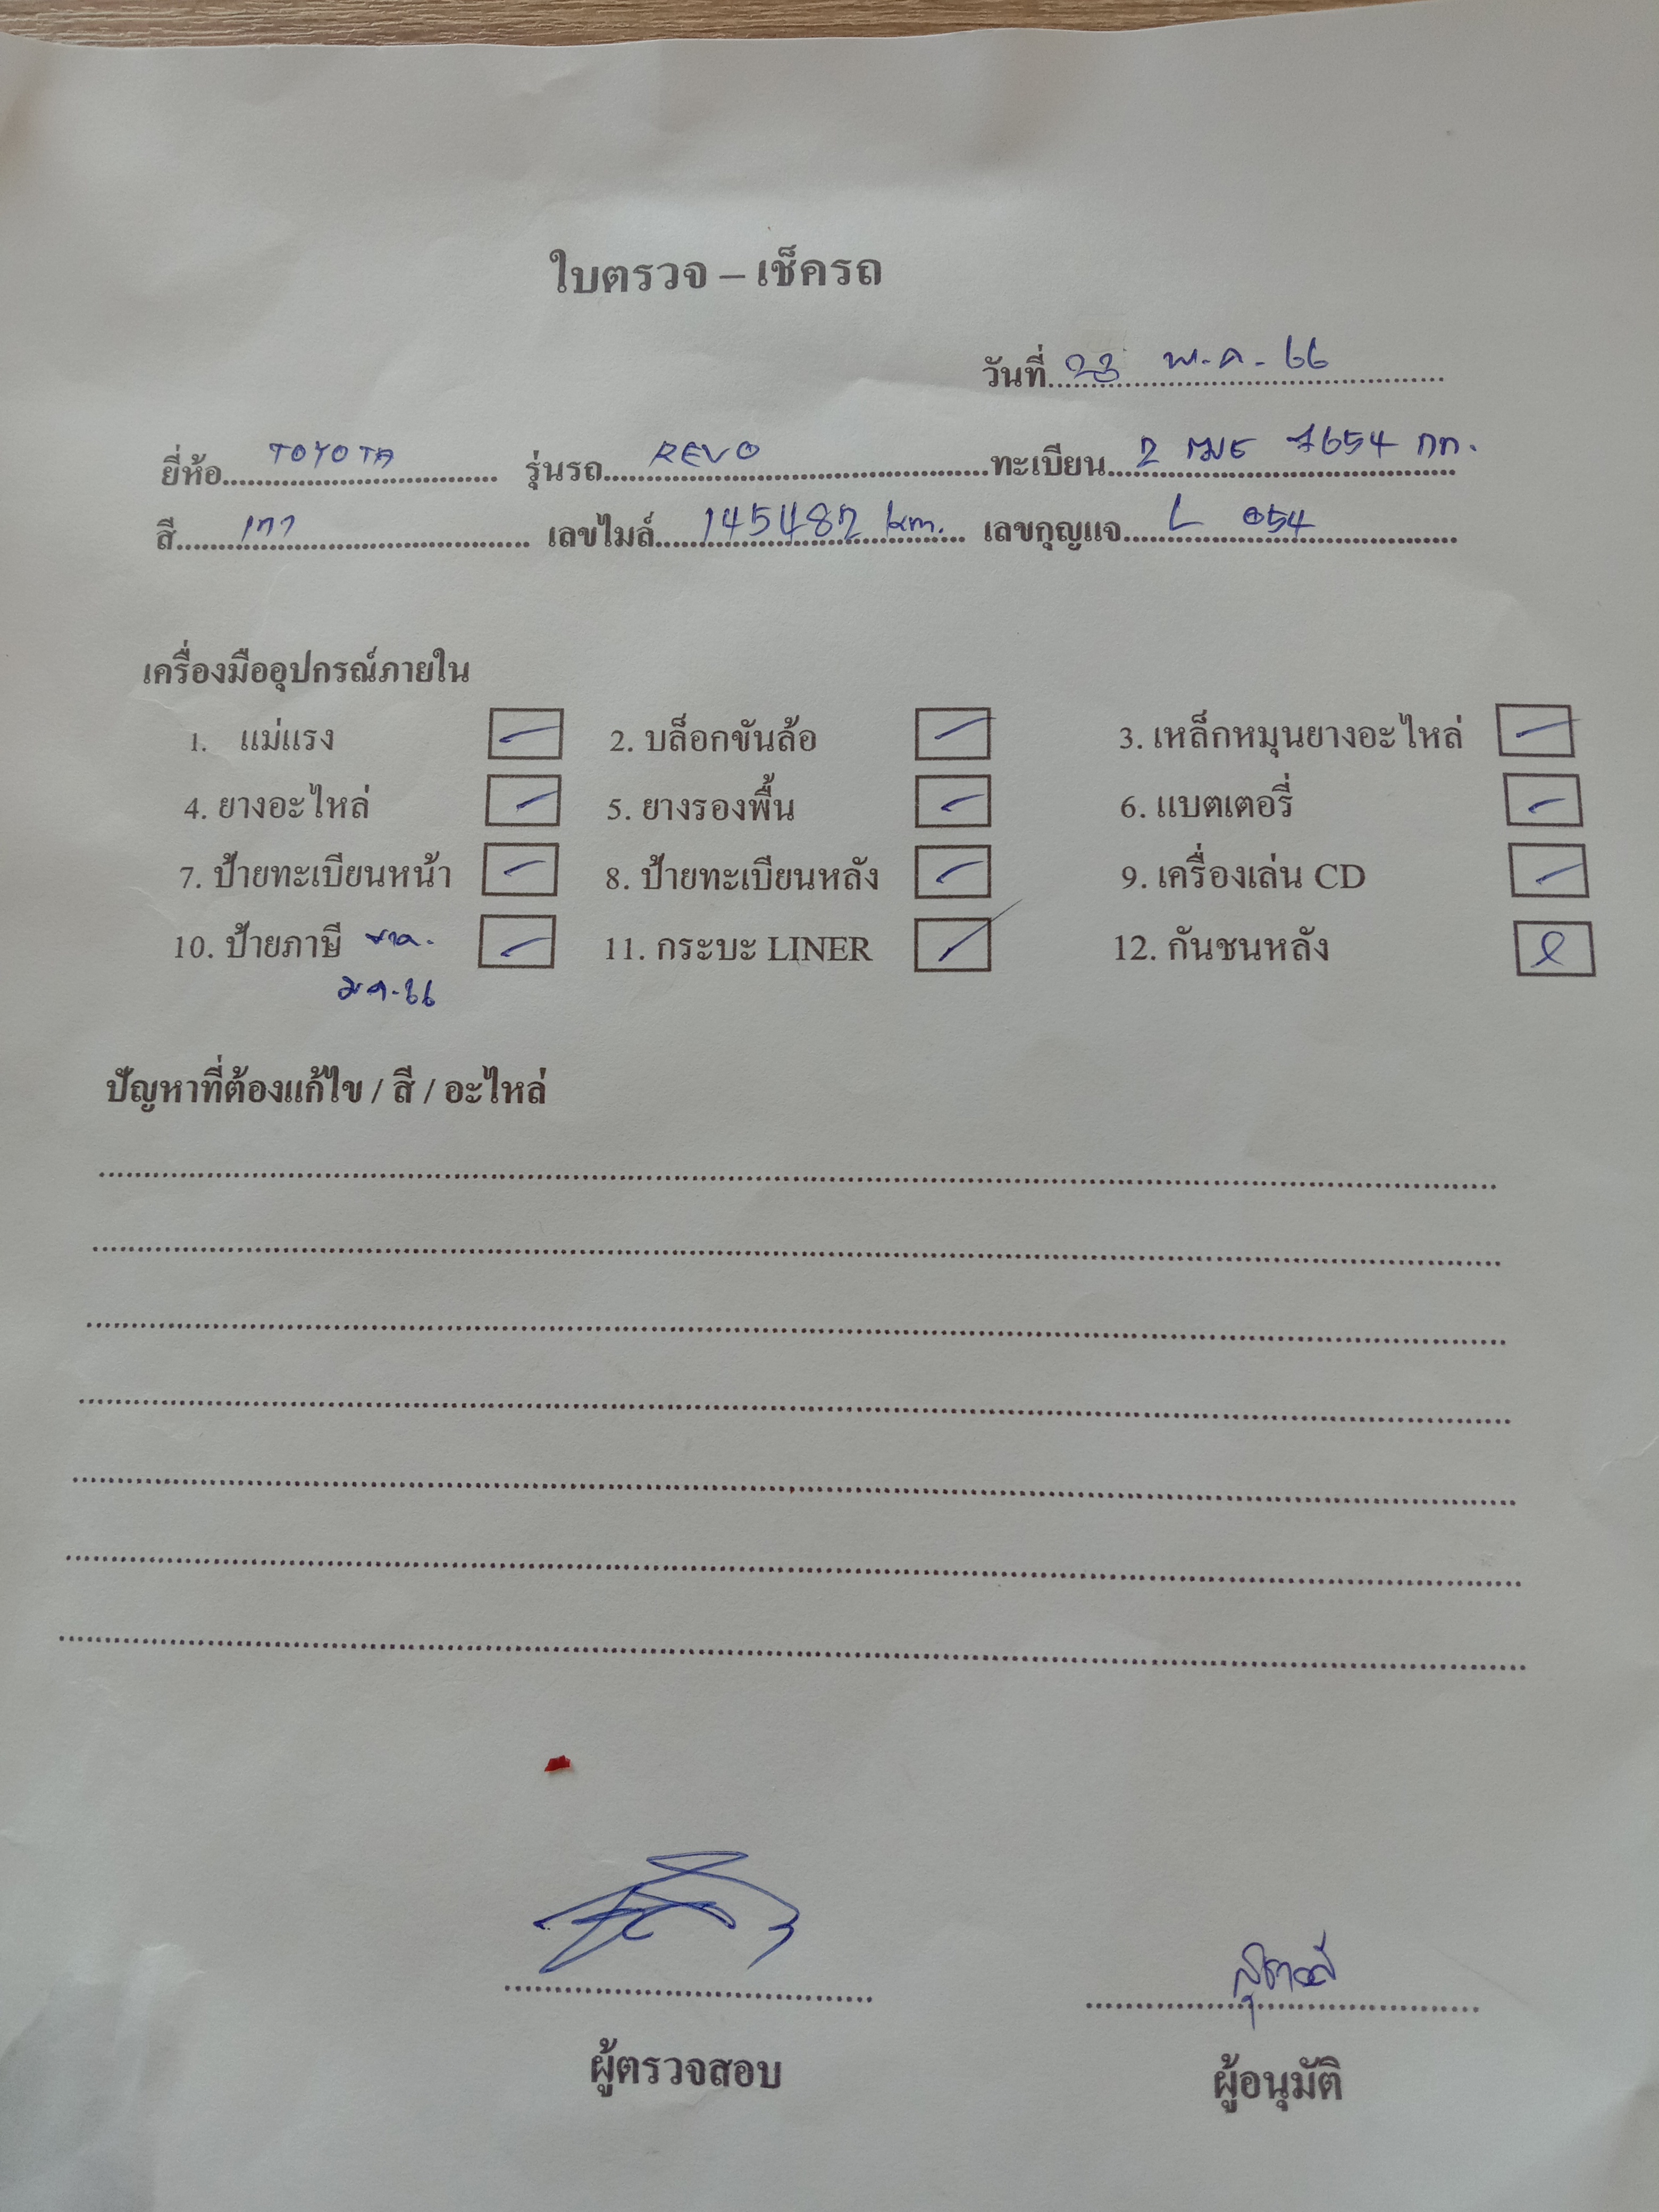 ใบตรวจ – เช็ครถ
วันที่ 23 พ.ค. 66
ยี่ห้อ TOYOTA รุ่นรถ REVO ทะเบียน 2 ฒธ 7654 กท.
สี เทา เลขไมล์ 145482 km. เลขกุญแจ L 054
เครื่องมืออุปกรณ์ภายใน
1. แม่แรง 2. บล็อกขันล้อ 3. เหล็กหมุนยางอะไหล่
4. ยางอะไหล่ 5. ยางรองพื้น 6. แบตเตอรี่
7. ป้ายทะเบียนหน้า 8. ป้ายทะเบียนหลัง 9. เครื่องเล่น CD
10. ป้ายภาษี ขาด. 11. กระบะ LINER 12. กันชนหลัง
ม.ค.66
ปัญหาที่ต้องแก้ไข / สี / อะไหล่
ผู้ตรวจสอบ ผู้อนุมัติ